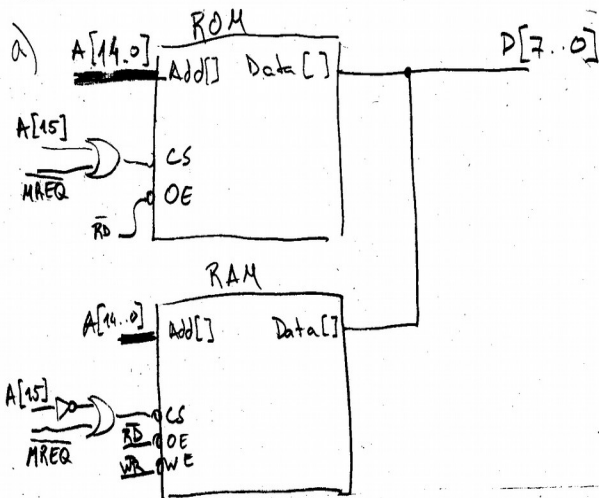 a)
ROM
A[14..0]
Add[] Data[]
D[7..0]
A[15]
MREQ
CS
OE
RD
RAM
A[14..0]
Add[] Data[]
A[15]
MREQ
CS
RD OE
WR WE